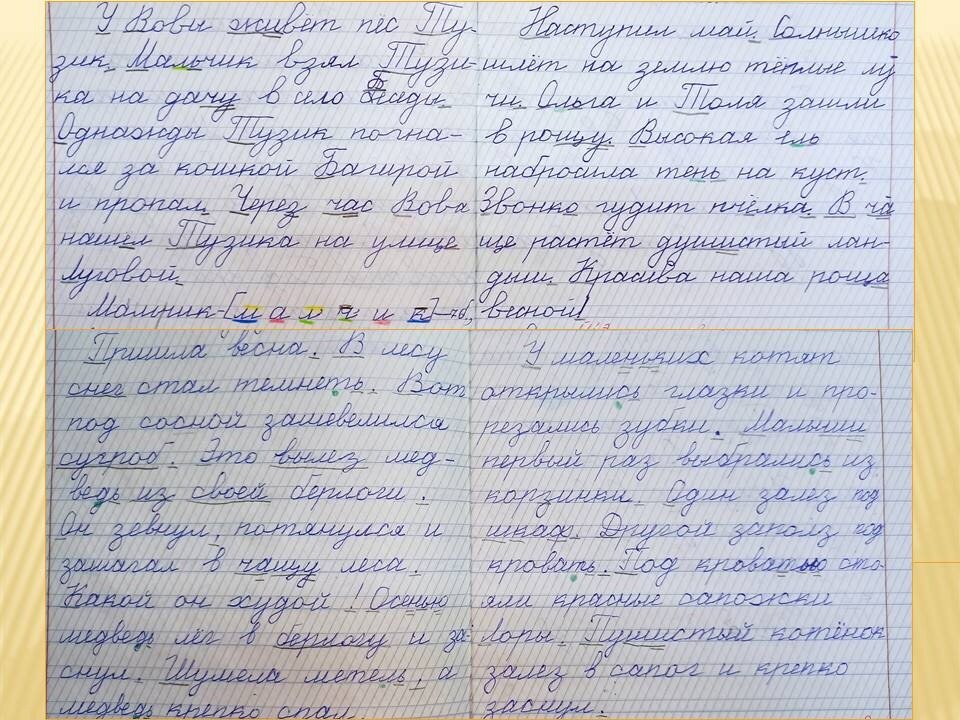 У Вовы живёт пёс Ту-
зик. Мальчик взял Тузи-
ка на дачу в село Беседы.
Однажды Тузик погна-
лся за кошкой Багирой
и пропал. Через час Вова
нашёл Тузика на улице
Луговой.
Мальчик - [м а л' ч' и к] - 7б.,
Наступил май. Солнышко
шлёт на землю тёплые лу
чи. Ольга и Толя зашли
в рощу. Высокая ель
набросила тень на куст.
Звонко гудит пчёлка. В ча
ще растёт душистый лан-
дыш. Красива наша роща
весной!
Пришла весна. В лесу
снег стал темнеть. Вот
под сосной зашевелился
сугроб. Это вылез мед-
ведь из своей берлоги.
Он зевнул, потянулся и
зашагал в чащу леса.
Какой он худой! Осенью
медведь лёг в берлогу и за-
снул. Шумела метель, а
медведь крепко спал.
У маленьких котят
открылись глазки и про-
резались зубки. Малыши
первый раз выбрались из
корзинки. Один залез под
шкаф. Другой заполз под
кровать. Под кроватью сто-
яли красные сапожки
Лоры. Пушистый котёнок
залез в сапог и крепко
заснул.